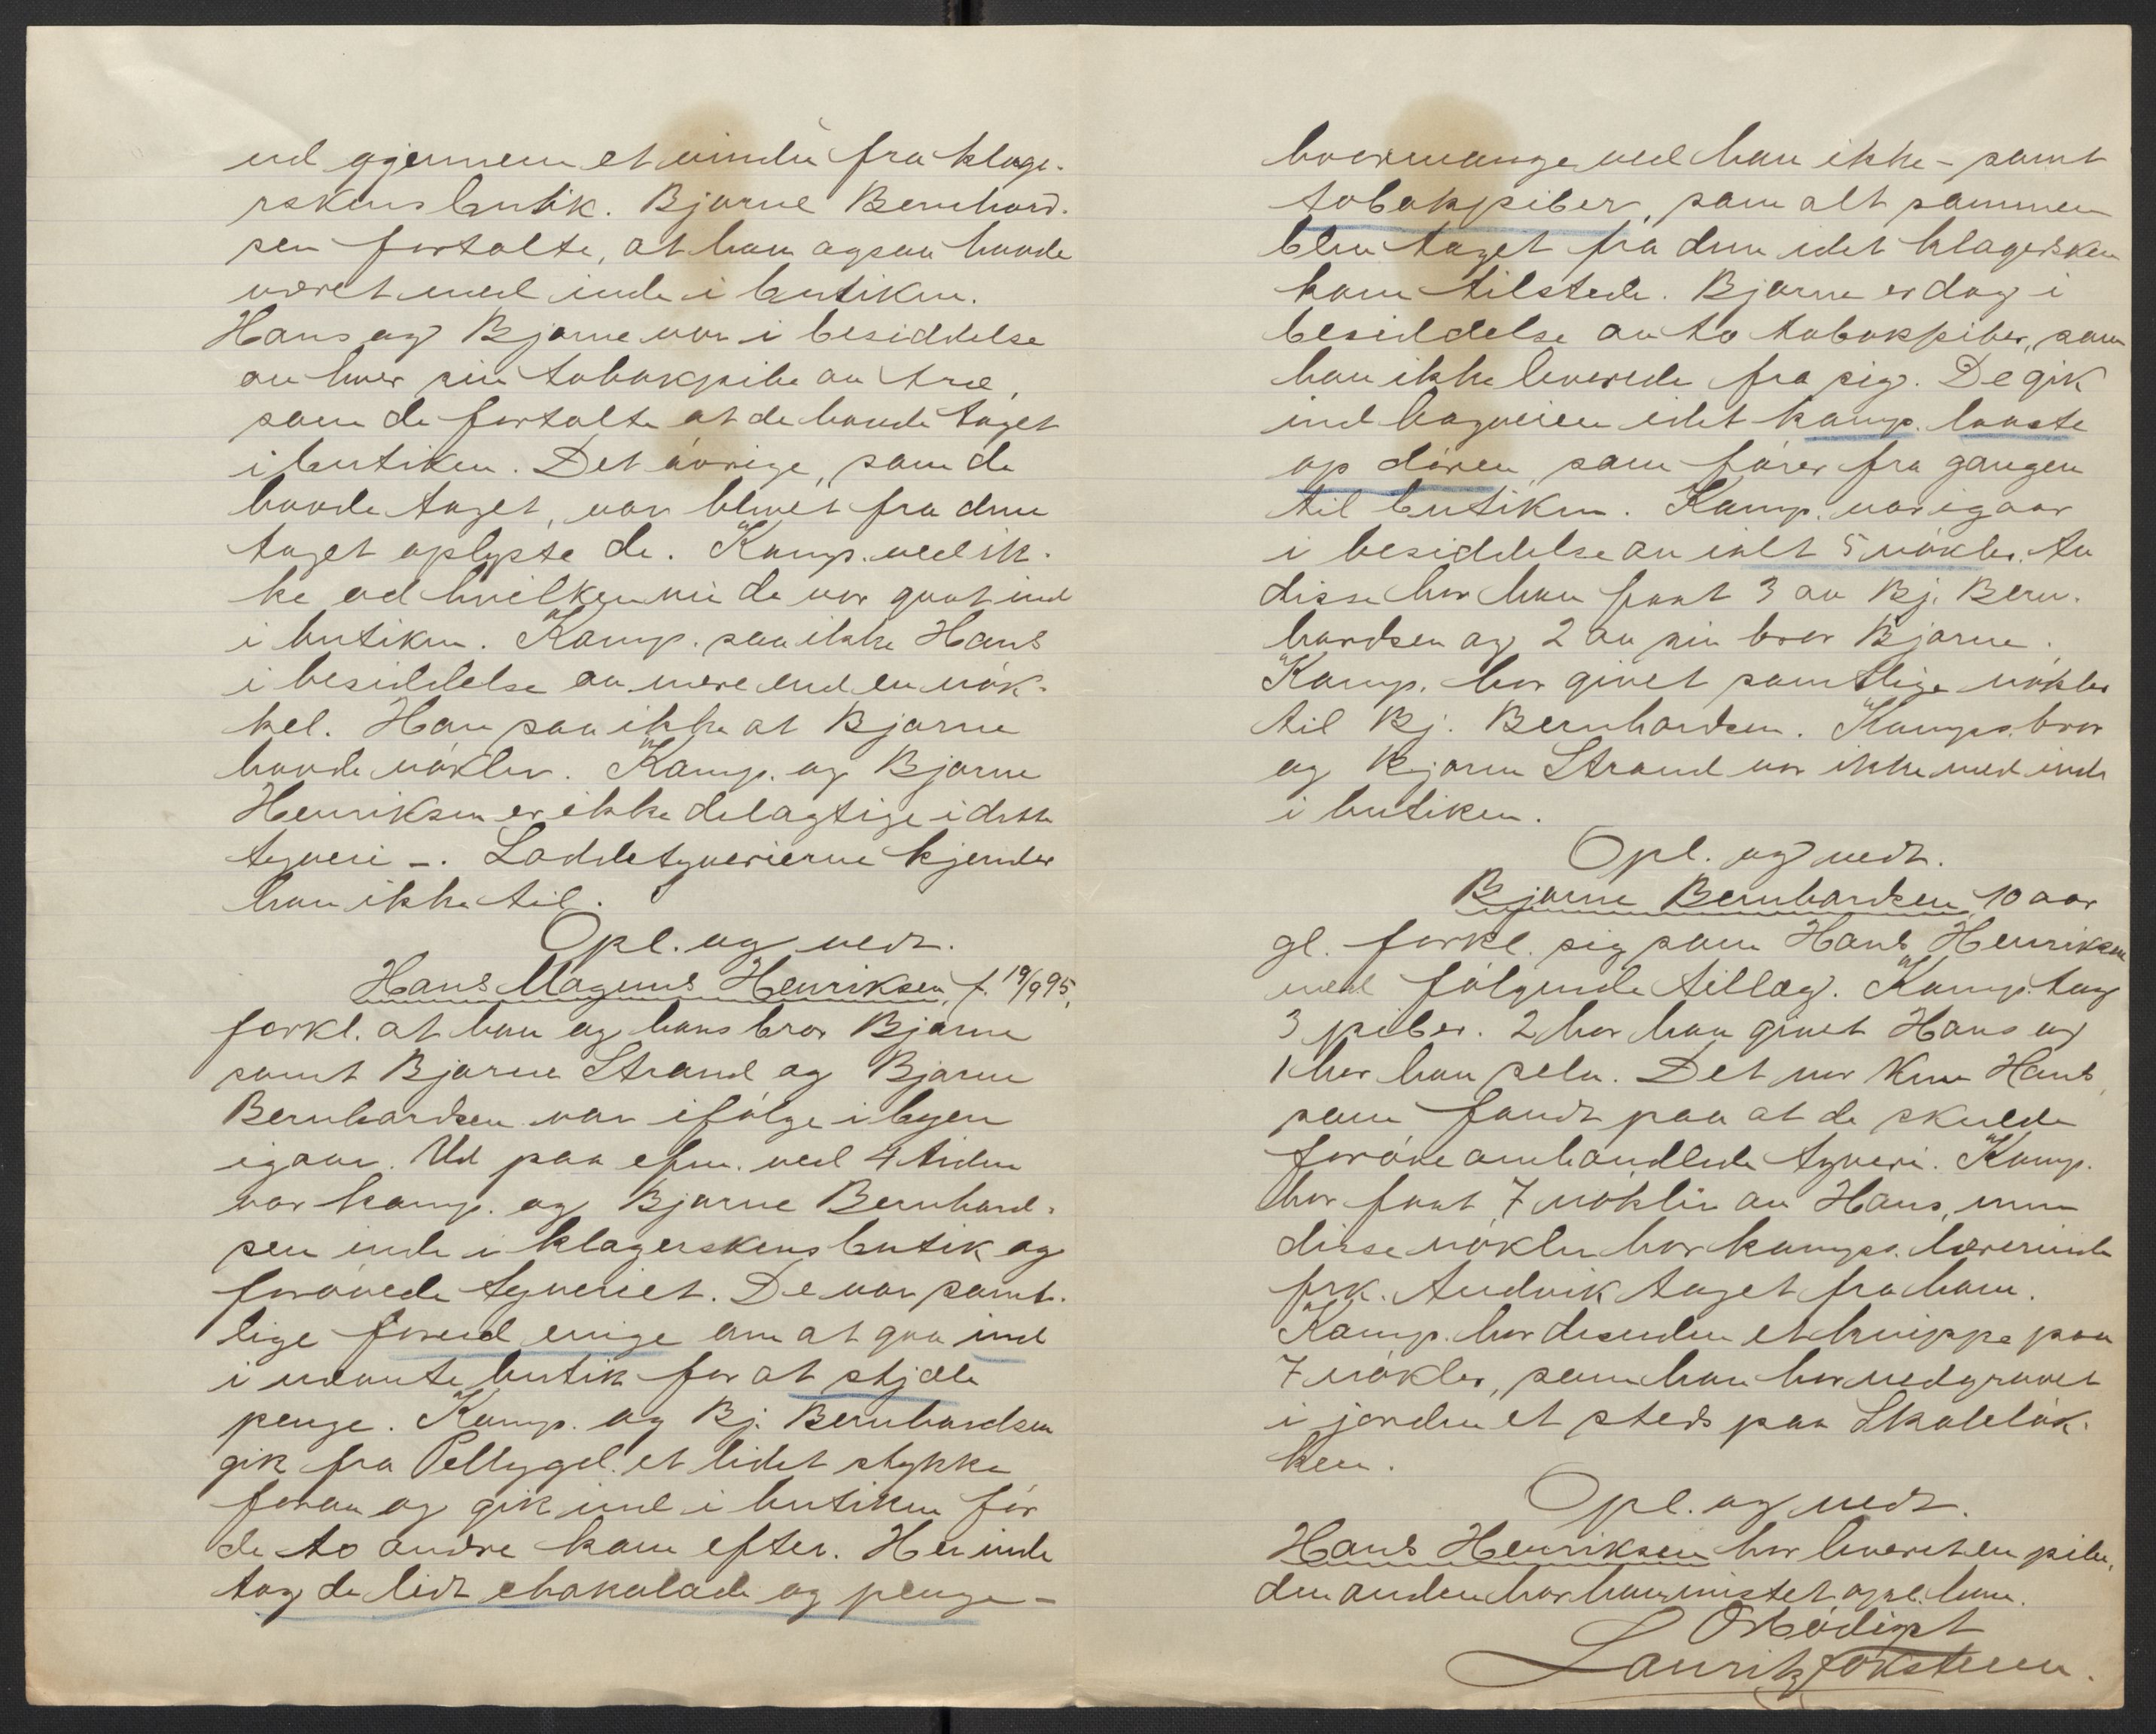 ud gjennem et vindu fra klage-
rskens butik. Bjarne Bernhard-
sen fortalte, at han ogsaa havde
været med inde i butiken.
Hans og Bjarne var i besiddelse
av hver sin tobakpibe av træ,
som de fortalte at de havde taget
i butiken. Det øvrige, som de
havde taget, var blevet fra dem
taget oplyste de. Komp. ved ik-
ke ad hvilken vei de var gaat ind
i butiken. Komp. saa ikke Hans
i besiddelse av mere end en nøk-
kel. Han saa ikke at Bjarne
havde nøkler. Komp. og Bjarne
Henriksen er ikke delagtige i dette
tyveri -. Loddetyverierne kjender
han ikke til.
Opl. og vedt.
Hans Magnus Henriksen, f. 19/9 95,
forkl. at han og hans bror Bjarne
samt Bjarne Strand og Bjarne
Bernhardsen var ifølge i byen
igaar. Ud paa efm. ved 4 tiden
var komp. og Bjarne Bernhard-
sen inde i klagerskens butik og
forøvede tyveriet. De var samt-
lige forud enige om at gaa ind
i nævnte butik for at stjæle
penge. Komp. og Bj. Bernhardsen
gik fra Peltzgd. et lidet stykke
foran og gik ind i butiken før
de to andre kom efter. Her inde
tog de lidt chokolade og penge -
hvormange ved han ikke - samt
tobakpiber, som alt sammen
blev taget fra dem idet klagersken
kom tilstede. Bjarne er dog i
besiddelse av to tobakpiber, som
han ikke leverede fra sig. De gik
ind bagveien idet komp. laaste
op døren som fører fra gangen
til butiken. Komp. var igaar
i besiddelse av ialt 5 nøkler. Av
disse har han faat 3 av Bj. Bern-
hardsen og 2 av sin bror Bjarne.
Komp. har givet samtlige nøkler
til Bj. Bernhardsen. Komps. bror
og Bjarne Strand var ikke med inde
i butiken.
Opl. og vedt.
Bjarne Bernhardsen, 10 aar
gl. forkl. sig som Hans Henriksen
med følgende tillæg. Komp. tog
3 piber. 2 har han givet Hans og
1 har han selv. Det var kun Hans,
som fandt paa at de skulde
forøve omhandlede tyveri. Komp.
har faat 7 nøkler av Hans, men
disse nøkler har komps. lærerinde
frk. Andvik taget fra ham.
Komp. har desuden et knippe paa
7 nøkler, som han har nedgravet
i jorden et sted paa Skoleløk-
ken.
Opl. og vedt.
Hans Henriksen har leveret en pibe,
den anden har han mistet opl. han.
Ærbødigst